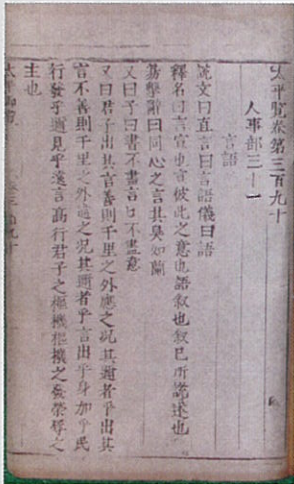 太平覽卷第三百九十
人事部三十一
言語
說文曰直言曰言語儀曰語
釋名曰言宣也宣彼此之意也語叙也叙已所說述也
易擊辭曰同心之言其臭如蘭
又曰子曰書不盡言言不盡意
又曰君子出其言善則千里之外應之況其邇者乎出其
言不善則千里之外違之況其邇者乎言出乎身加乎民
行發乎邇見乎遠言高行君子之樞機樞機之發榮辱之
主也